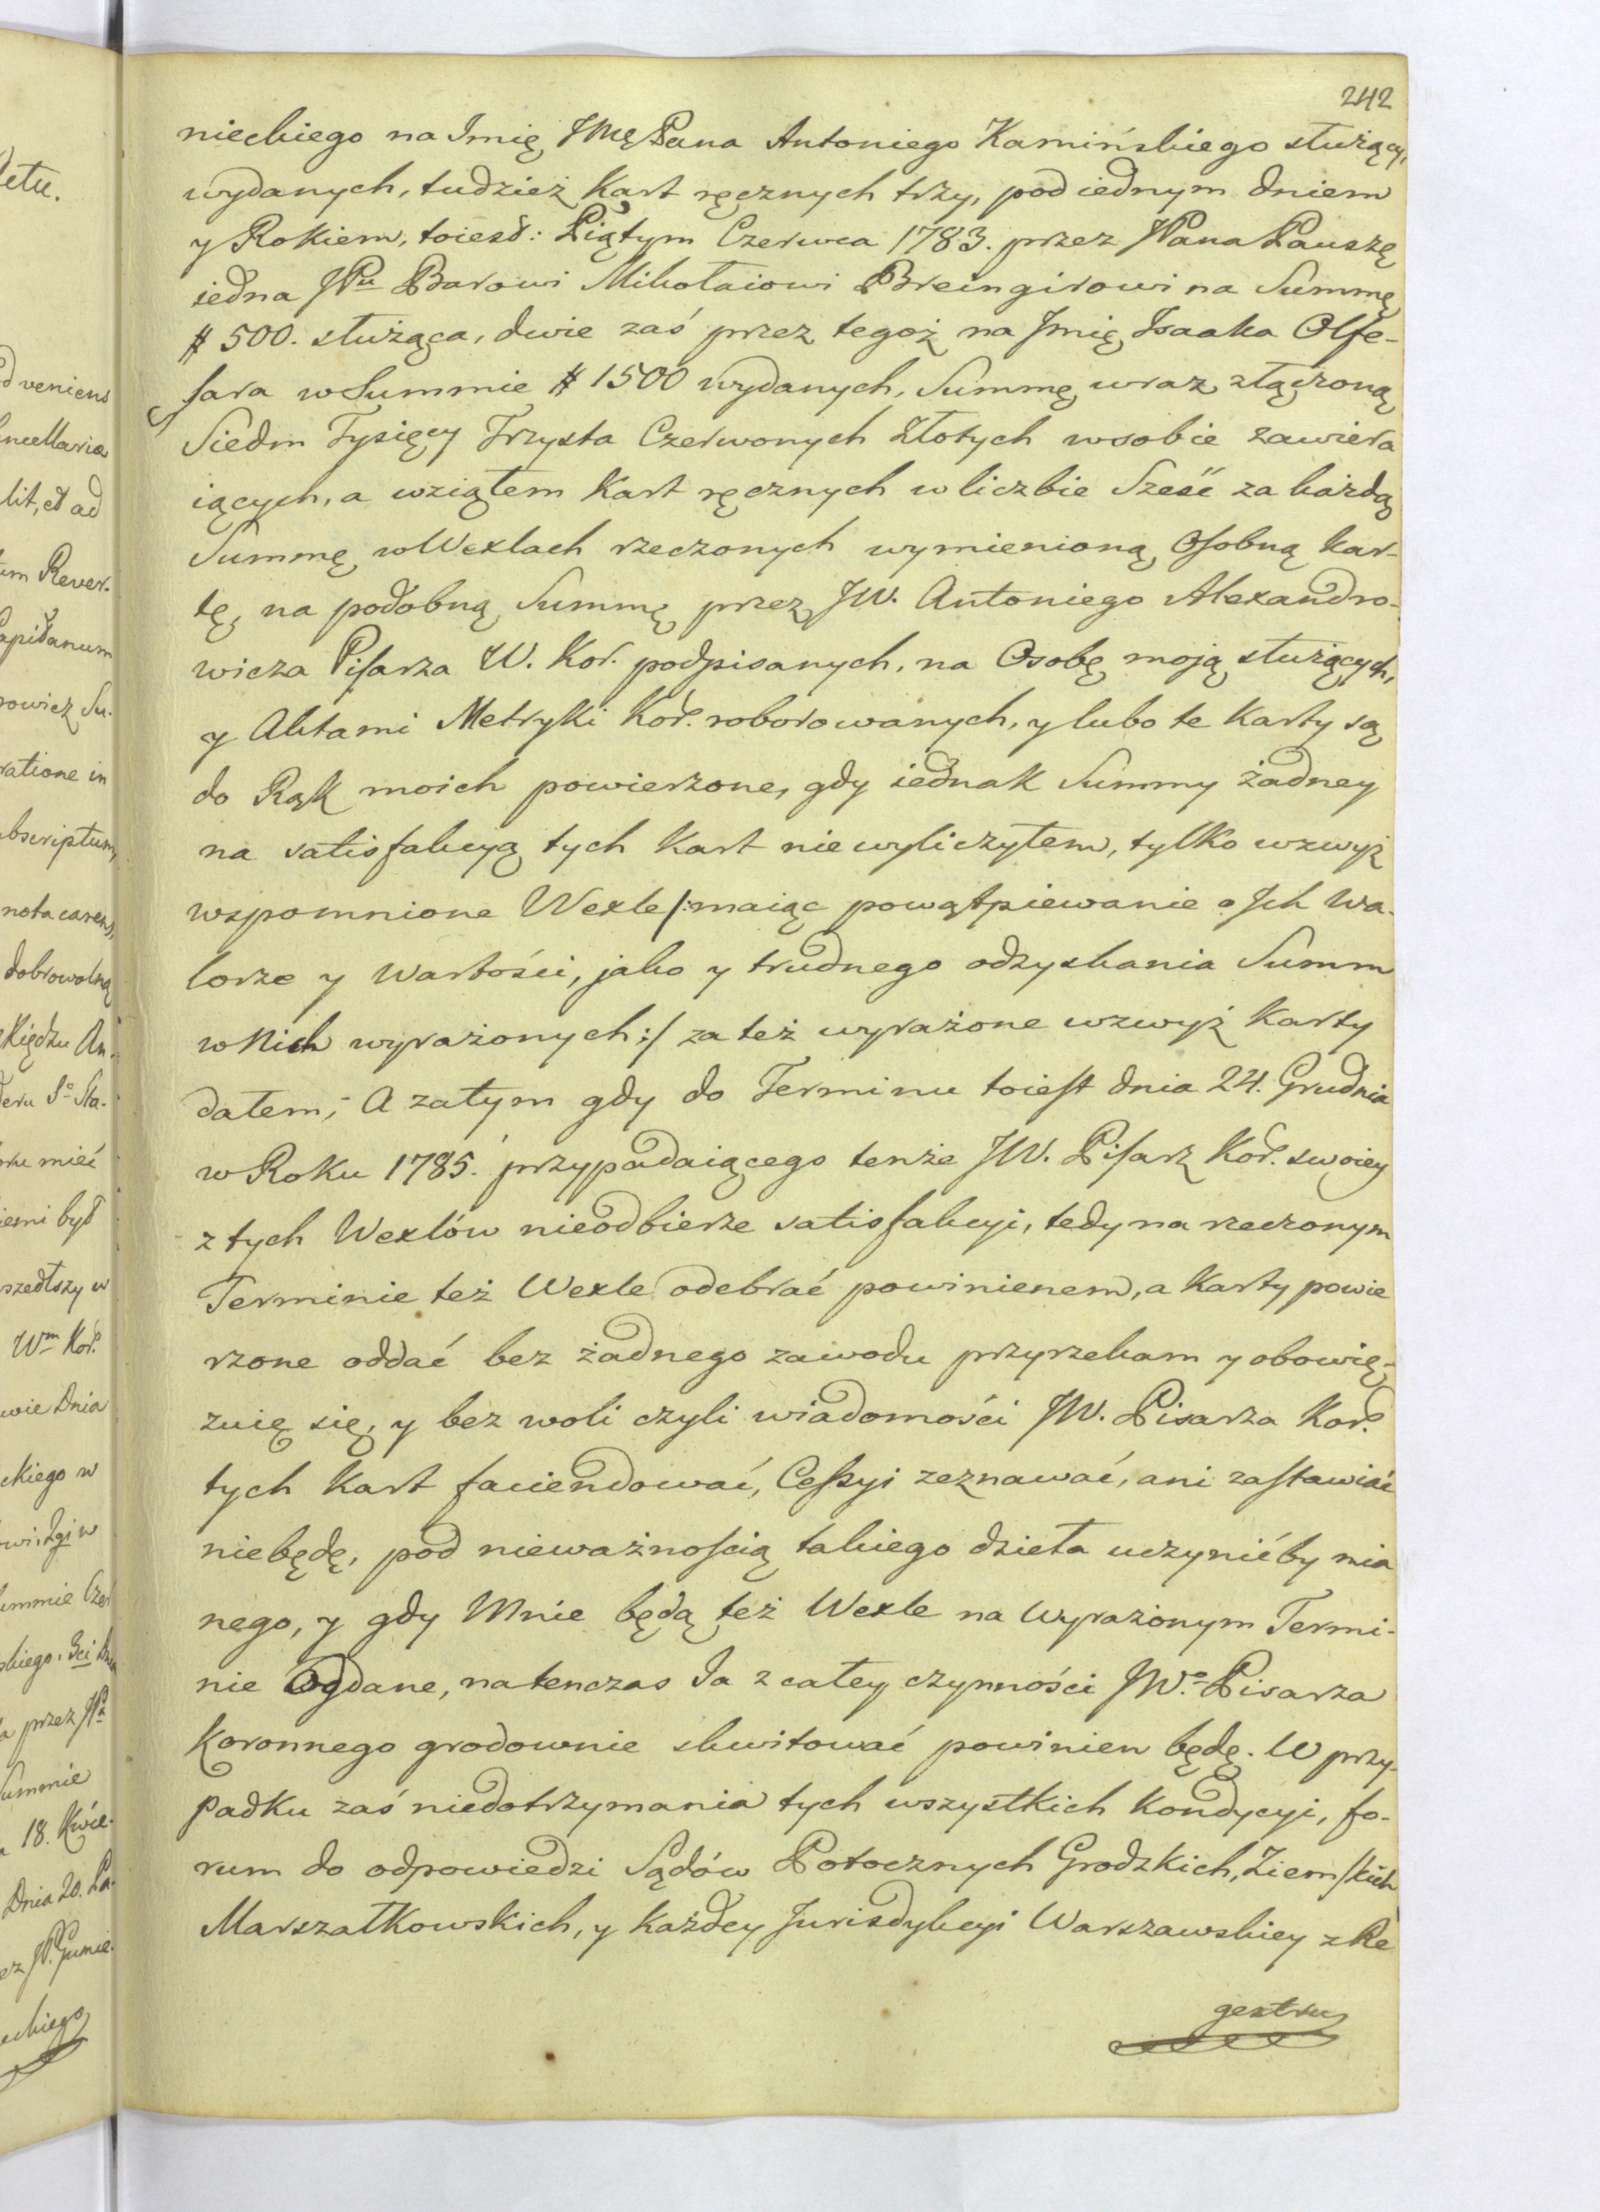 242
nieckiego na Imię JMę Pana Antoniego Kamińskiego służący,
wydanych, tudzież Kart ręcznych trzy, pod iednym dniem
y Rokiem, toiest: Piątym Czerwca 1783. przez JPana Pauszę
iedna JPu Barowi Mikołaiowi Breingirowi na Summę
# 500. służąca, dwie zaś przez tegoż na Jmię Isaaka Olfe-
fara w Summie # 1500 wydanych, Summę wraz złączoną
Siedm Tysięcy Trzysta Czerwonych Złotych w sobie zawiera
iących, a wziąłem Kart ręcznych w liczbie Sześć za każdą
Summę w Wexlach rzeczonych wymienioną Osobną kar-
tę, na podobną Summę przez JW. Antoniego Alexandro-
wicza Pisarza W. Kor. podpisanych, na Osobę moją służących,
y Aktami Metryki Kor. roborowanych, y lubo te Karty są
do Rąk moich powierzone, gdy iednak Summy żadney
na satisfakcyą tych Kart niewyliczyłem, tylko wzwyż
wspomnione Wexle /:maiąc powątpiewanie o Jch wa-
lorze y wartości, jako y trudnego odzyskania Summ
w Nich wyrażonych:/ za też wyrażone wzwyż Karty
dałem; A zatym gdy do Terminu toiest dnia 24. Grudnia
w Roku 1785. przypadaiącego tenże JW. Pisarz Kor. swoiey
z tych Wexlów nieodbierze satisfakcyi, tedy na rzeczonym
Terminie też Wexle odebrać powinienem, a Karty powie
rzone oddać bez żadnego zawodu przyrzekam y obowię-
zuię się, y bez woli czyli wiadomości JW. Pisarza Kor.
tych Kart faciendować, Cessyi zeznawać, ani zastawiać
niebędę, pod nieważnością takiego dzieła uczynić by mia
nego, y gdy Mnie będą też Wexle na wyrażonym Termi-
nie oddane, natenczas Ja z całey czynności JWo Pisarza
Koronnego grodownie skwitować powinien będę. W przy-
padku zaś niedotrzymania tych wszystkich Kondycyi, fo-
rum do odpowiedzi Sądów Potocznych Grodzkich, Ziemskich
Marszałkowskich, y każdey Jurisdykcyi Warszawskiey z Re
gestru